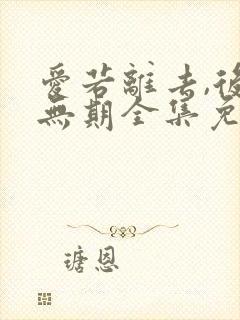 愛若離去,後
無期全集免
瑭恩